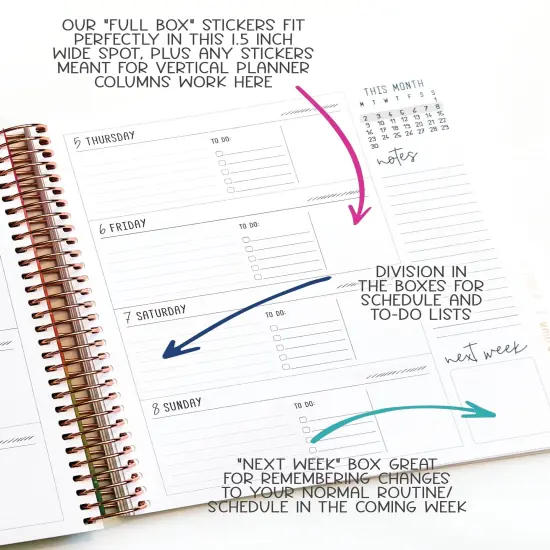 OUR "FULL BOX" STICKERS FIT
PERFECTLY IN THIS 1.5 INCH
WIDE SPOT, PLUS ANY STICKERS
MEANT FOR VERTICAL PLANNER
COLUMNS WORK HERE
THIS MONTH
M T W T F S S
1
2 3 4 5 6 7 8
9 10 11 12 13 14 15
16 17 18 19 20 21 22
23 24 25 26 27 28 29
30
notes
5 THURSDAY
TO DO:
6 FRIDAY
TO DO:
DIVISION IN
THE BOXES FOR
SCHEDULE AND
TO-DO LISTS
7 SATURDAY
TO DO:
next week
8 SUNDAY
TO DO:
"NEXT WEEK" BOX GREAT
FOR REMEMBERING CHANGES
TO YOUR NORMAL ROUTINE/
SCHEDULE IN THE COMING WEEK